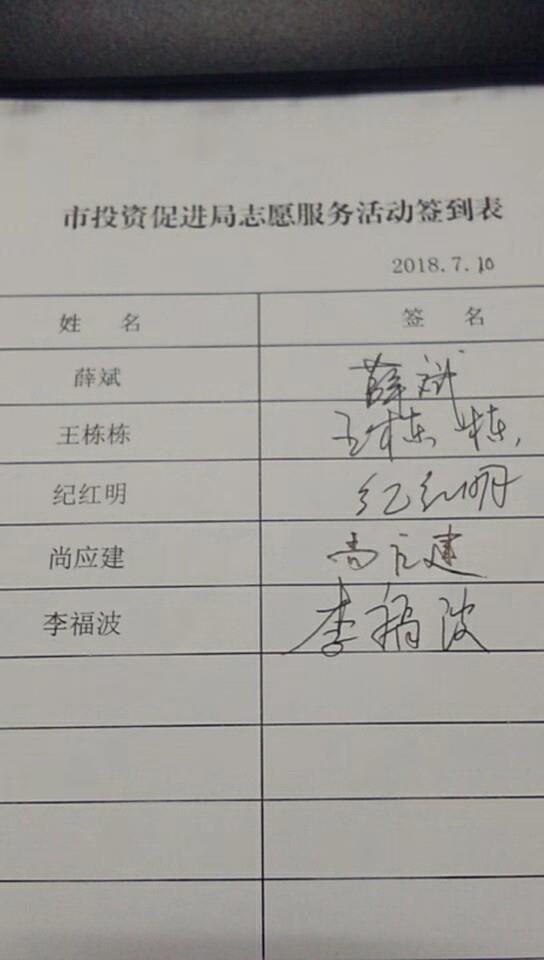 市投资促进局志愿服务活动签到表
2018.7.10
姓 名 签 名
薛斌 薛斌
王栋栋 王栋栋
纪红明 纪红明
尚应建 尚应建
李福波 李福波